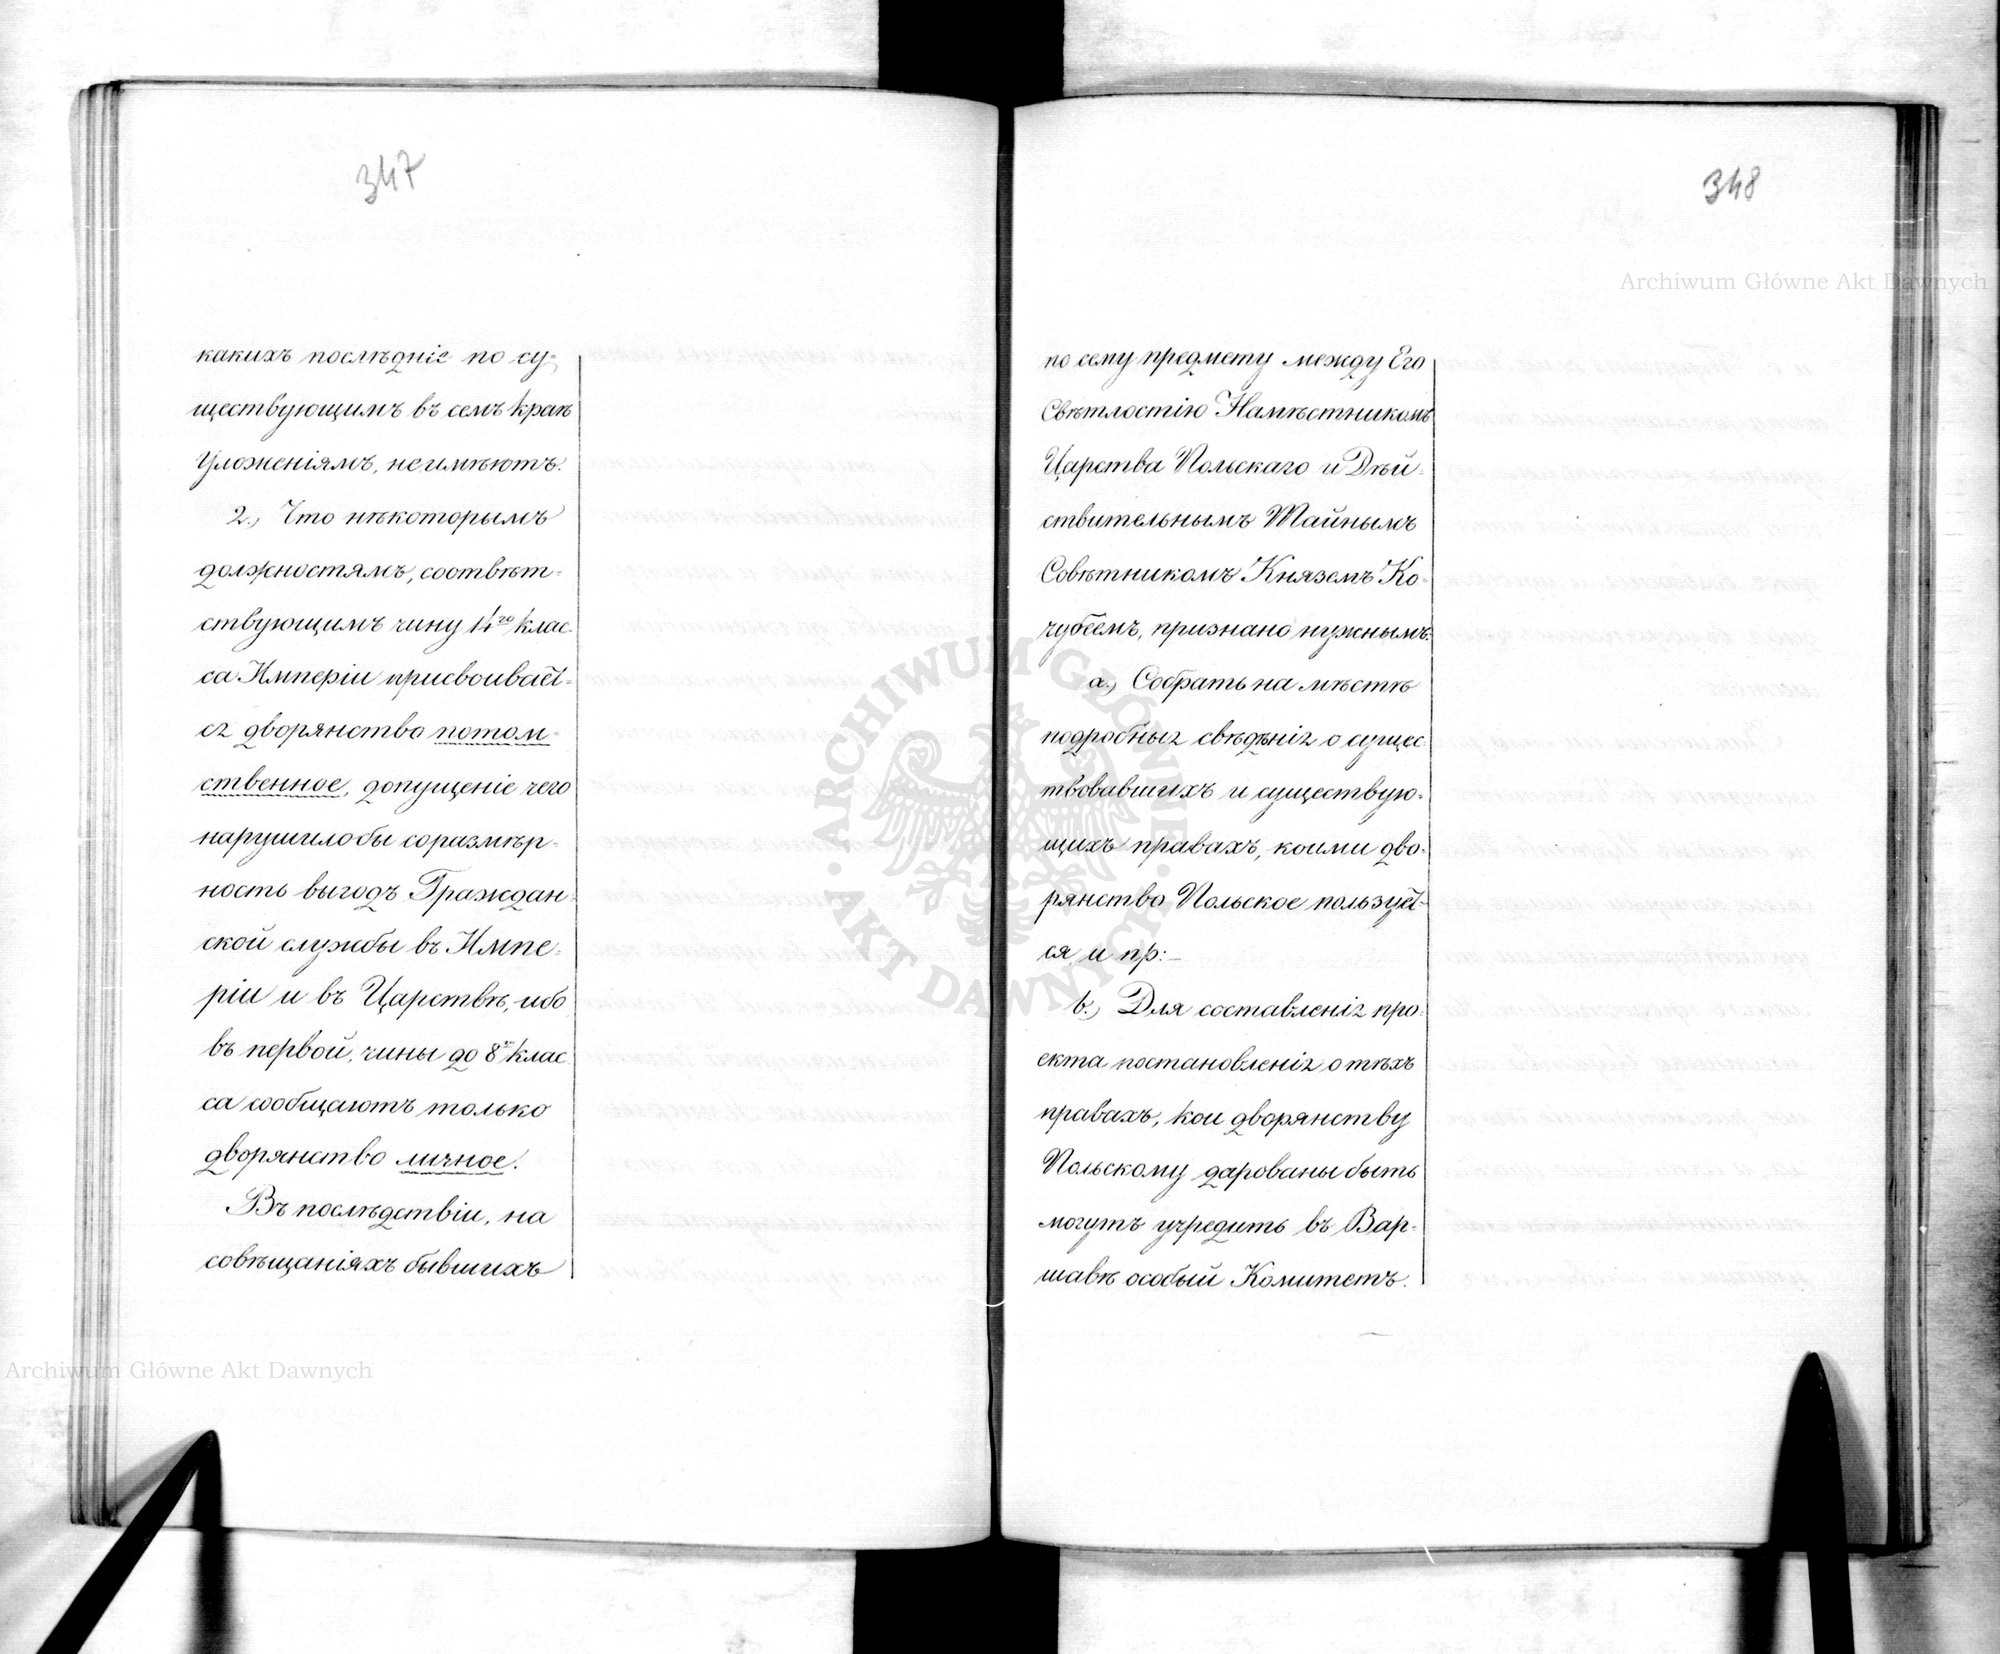 347
какихъ послѣднiе по су-
ществующимъ въ семъ краѣ
Уложенiямъ, не имѣютъ.
2., Что нѣкоторымъ
должностямъ, соотвѣт-
ствующимъ чину 14го клас-
са Имперiи присвоивает-
ся дворянство потом-
ственное, допущенiе чего
нарушило бы соразмѣр-
ность выгодъ Граждан-
ской службы въ Импе-
рiи и въ Царствѣ, ибо
въ первой, чины до 8го клас-
са сообщаютъ только
дворянство личное.
Въ послѣдствiи, на
совѣщанiяхъ бывшихъ
348
по сему предмету между Его
Свѣтлостiю Намѣстникомъ
Царства Польскаго и Дѣй-
ствительнымъ Тайнымъ
Совѣтникомъ Княземъ Ко-
чубеемъ, признано нужнымъ:
а., Собрать на мѣстѣ
подробныя свѣдѣнiя о сущес-
твовавшихъ и существую-
щихъ правахъ, коими дво-
рянство Польское пользует-
ся и пр:
b., Для составленiя про-
екта постановленiя о тѣхъ
правахъ, кои дворянству
Польскому дарованы быть
могутъ учредить въ Вар-
шавѣ особый Комитетъ.
Archiwum Główne Akt Dawnych
Archiwum Główne Akt Dawnych
ARCHIWUM GŁÓWNE · AKT DAWNYCH ·